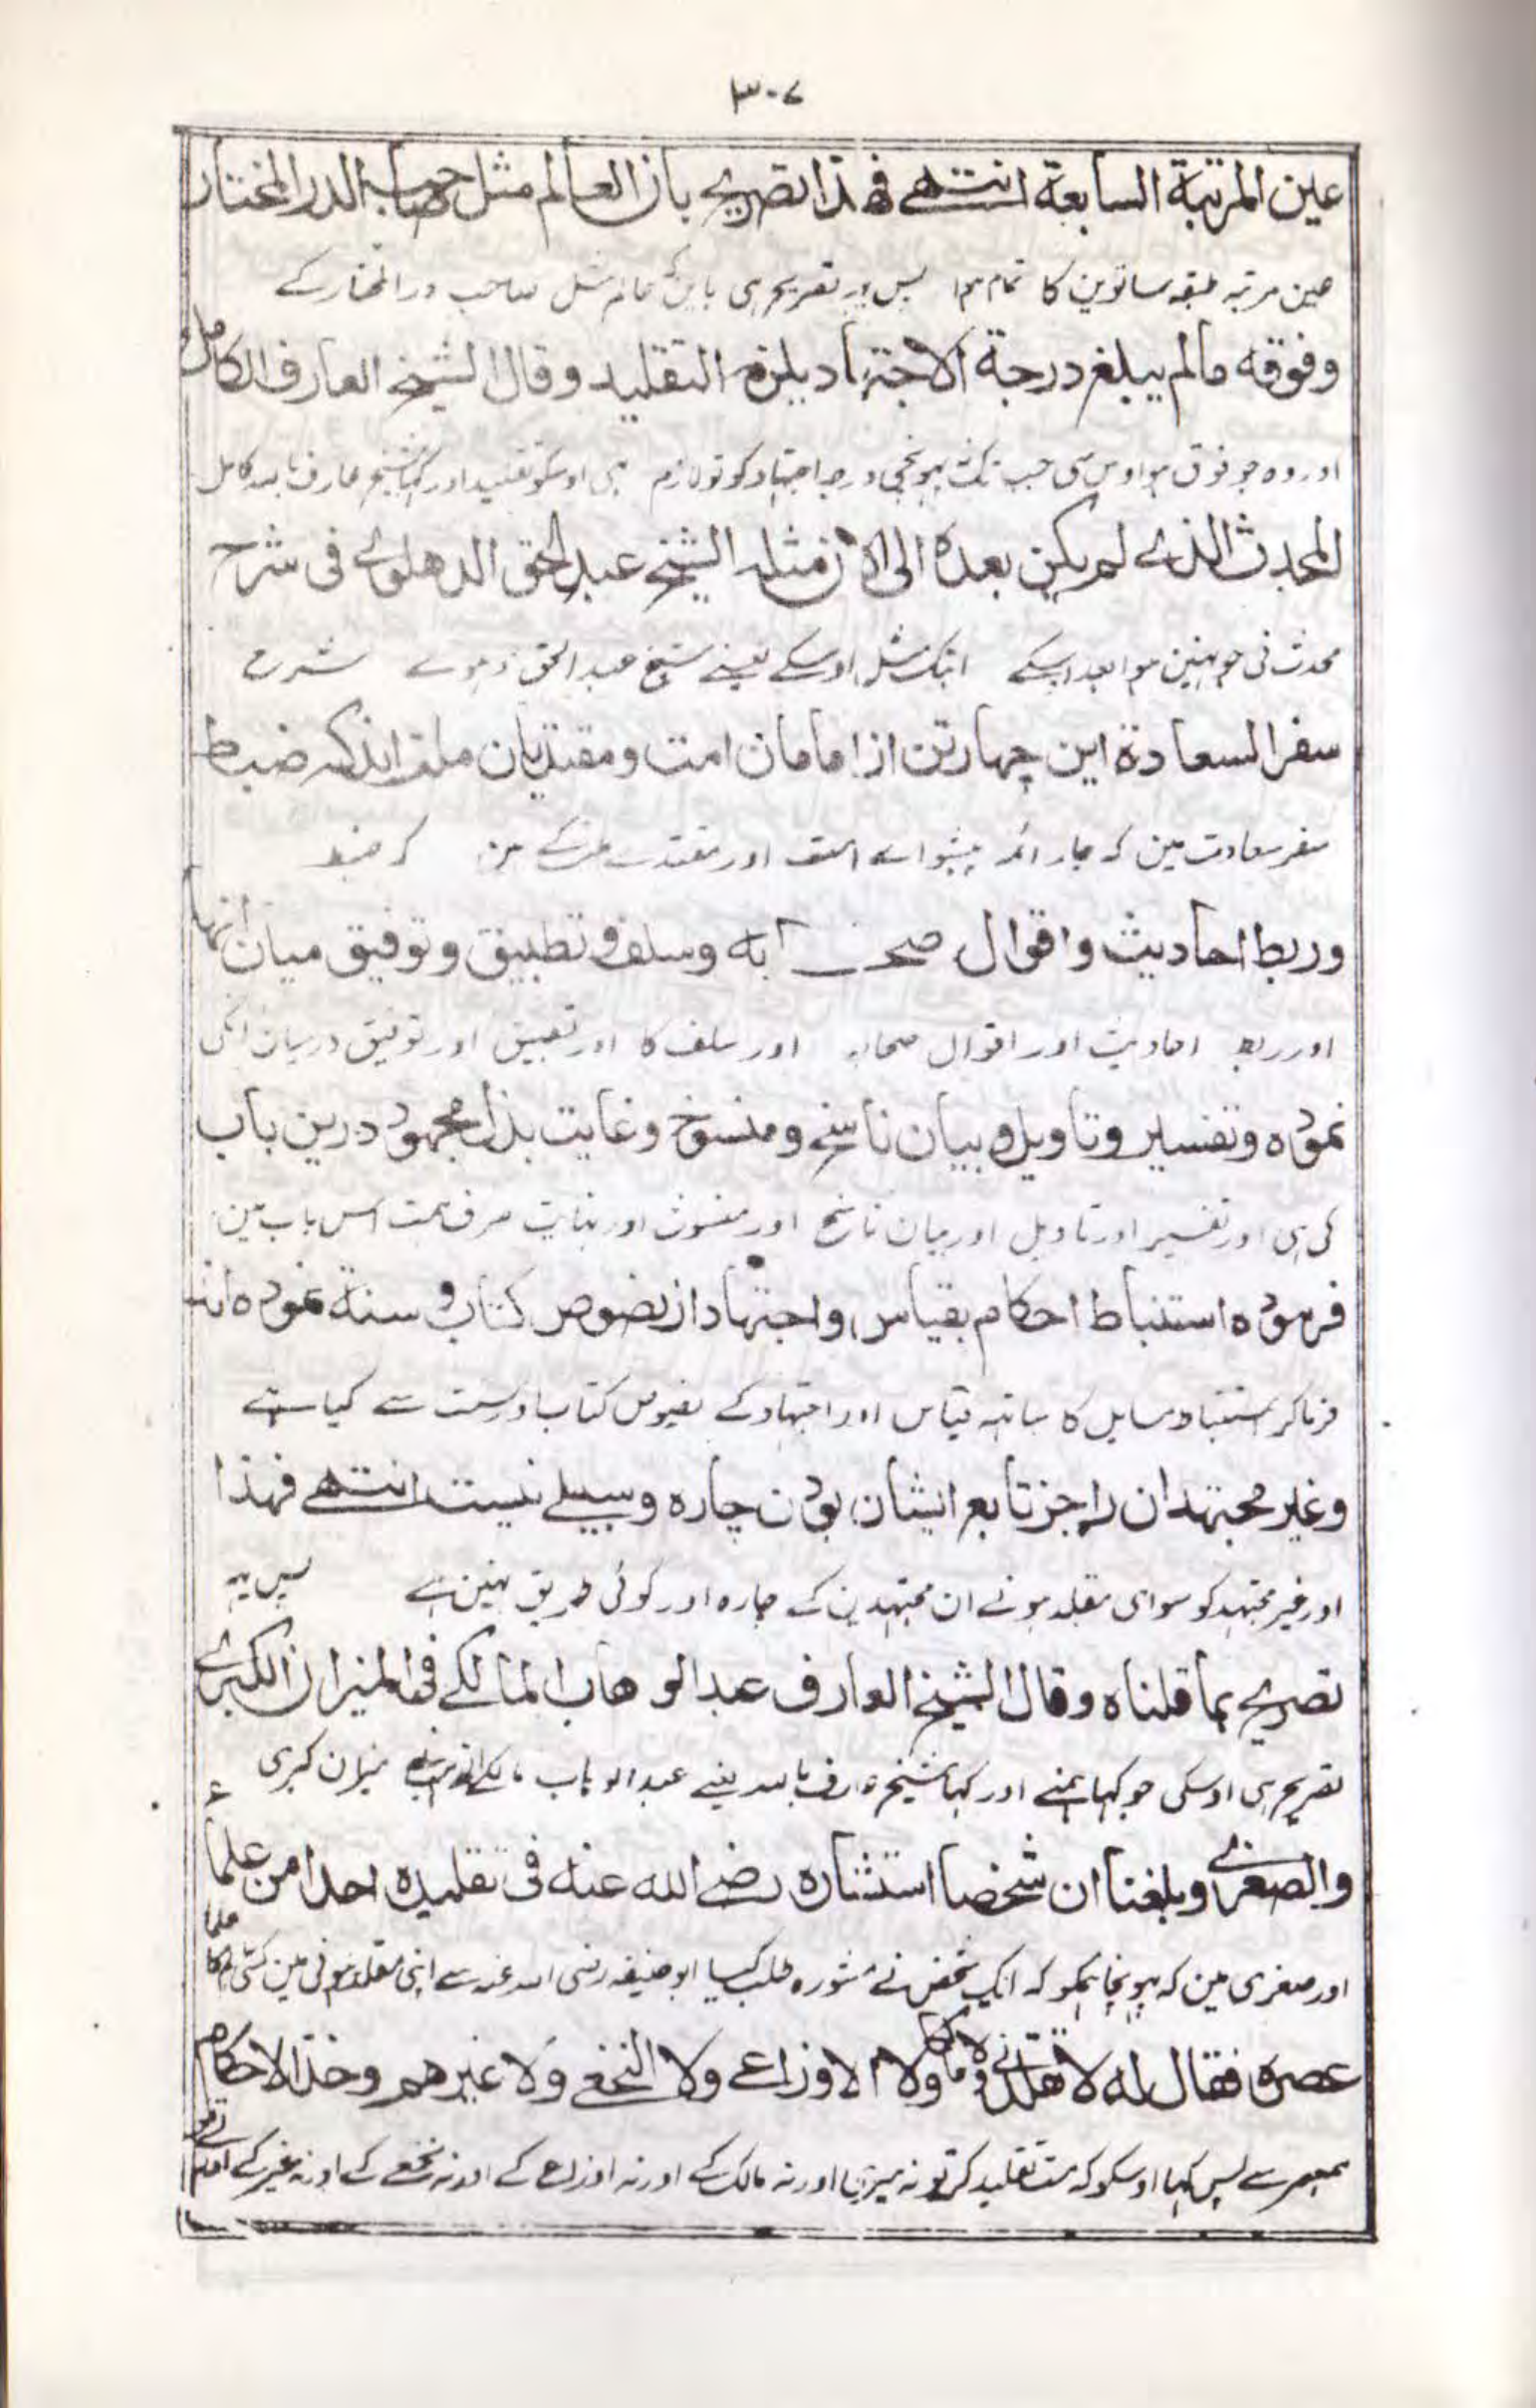 ۳۰۷
عین المرتبة السابعة انتهے فهذا تصریح بان العالم مثل صاحب الدر المختار
عین مرتبہ طبقہ ساتوین کا تمام ہوا پس یہ تصریح ہی باین کہ عالم مثل صاحب در المختار کے
وفوقه مالم یبلغ درجة الاجتهاد یلزمه التقلید وقال الشیخ العارف الکامل
اور وہ جو فوق ہو اوس سی جب تک نہ پہونچی درجہ اجتہاد کو تو لازم ہی اوسکو تقلید اور کہا شیخ عارف باسد کامل
المحدث الذے لم یکن بعده الی الان مثله الشیخ عبد الحق الدهلوے فی شرح
محدث نی جو نہین ہوا بعد اسکے ابتک مثل اوسکے یعنے شیخ عبد الحق دہلوے شرح
سفر السعادة این چهار تن از امامان امت و مقتدیان ملت اند که ضبط
سفر سعادت مین کہ چار ائمہ پیشوا اے امت اور مقتدے ملت کے ہین کہ ضبط
وربط احادیث و اقوال صحابه و سلف و تطبیق و توفیق میان انها
اور ربط احادیث اور اقوال صحابہ اور سلف کا اور تطبیق اور توفیق درمیان انکی
نموده و تفسیر و تاویل و بیان ناسخ و منسوخ و غایت بذل مجهود درین باب
کی ہی اور تفسیر اور تاویل اور بیان ناسخ اور منسوخ اور نہایت صرف ہمت اس باب مین
فرموده استنباط احکام بقیاس و اجتهاد از نصوص کتاب و سنة نموده اند
فرماکر استنباط مسایل کا ساتہہ قیاس اور اجتہاد کے نصوص کتاب اور سنت سے کیا ہے
وغیر مجتهدان را جز تابع ایشان بودن چاره و سبیلے نیست انتهے فهذا
اور غیر مجتہد کو سوای مقلد ہونے ان مجتہدین کے چارہ اور کوئی طریق نہین ہے پس یہ
تصریح بما قلناه وقال الشیخ العارف عبد الوهاب المالکے فی المیزان الکبرے
تصریح ہی اوسکی جو کہا ہمنے اور کہا شیخ عارف باسد یعنے عبد الوہاب مالکے میزان کبری
والصغرے وبلغنا ان شخصا استشاره رضے الله عنه فی تقلیده احدا من علماء
اور صغری مین کہ پہونچا ہمکو کہ ایک شخص نے مشورہ طلب کیا ابو حنیفہ رضی اسد عنہ سے اپنی مقلد ہونی مین کسی کا علما
عصره فقال له لا تقلدنی ولا مالکا ولا الاوزاعے ولا النخعے ولا غیرهم وخذ الاحکام
ہمعصر سے پس کہا اوسکو کہ مت تقلید کر تو نہ میری اور نہ مالک کے اور نہ اوزاعے کے اور نہ نخعے کے اور نہ غیر کے